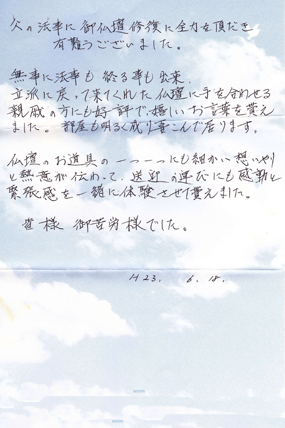 父の法事に御仏壇修復に全力を頂だき
有難うございました。
無事に法事も終る事も出来、
立派に戻って来てくれた仏壇に手を合わせる
親戚の方にも好評で、嬉しいお言葉を貰え
ました。部屋も明るく成り喜こんで居ります。
仏壇のお道具の一つ一つにも細かい想いやり
と熱意が伝わって、送迎の運びにも感動と
緊張感を一緒に体験させて貰えました。
皆様御苦労様でした。
H23. 6. 18.